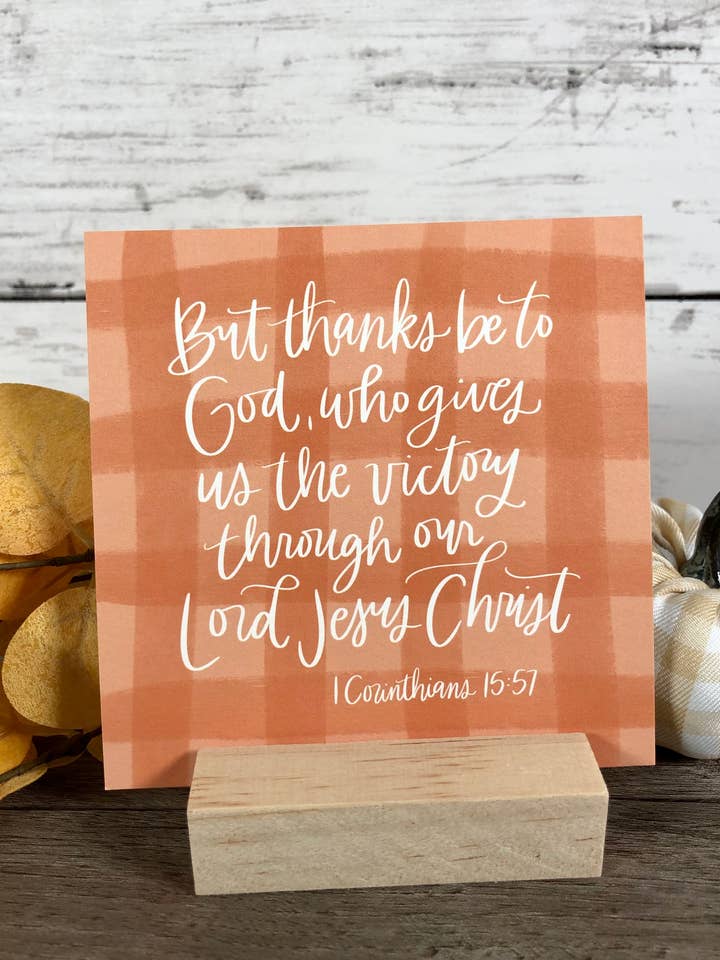 But thanks be to
God, who gives
us the victory
through our
Lord Jesus Christ
1 Corinthians 15:57